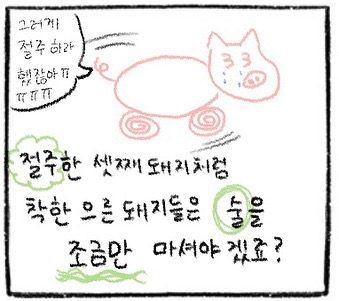 그러게
절주하라
했잖아ㅠ
ㅠㅠㅠ
절주한 셋째돼지처럼
착한 으른돼지들은 술을
조금만 마셔야겠죠?